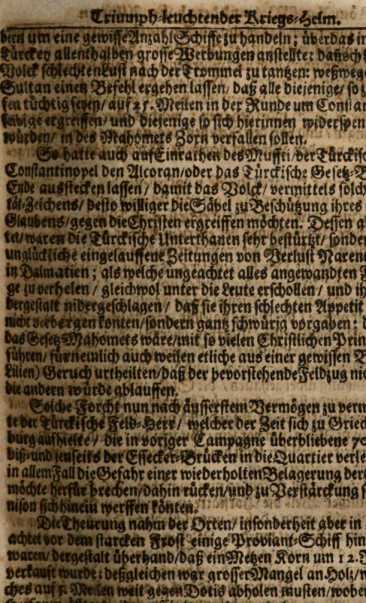 Triumph-leuchtender Kriegs-Helm.
bern um eine gewisse Anzahl Schiffe zu handeln; überdas in
Türckey allenthalben grosse Werbungen anstellte: daßsich
Volck schlechten Lust nach der Trommel zu tantzen: weßwege
Sultan einen Befehl ergehen lassen/ daß alle diejenige/ so z
fen tüchtig seyen/ auf 25. Meilen in der Runde um Constan
selbige ergreiffen/ und diejenige so sich hierinnen widerspen
würden/ in des Mahomets Zorn verfallen sollen.
So hatte auch auf Einrathen des Muffti/ der Türckisc
Constantinopel den Alcoran/ oder das Türckische Gesetz-B
Ende ausstecken lassen/ damit das Volck/ vermittels solch
täl-Zeichens/ desto williger die Säbel zu Beschützung ihres
Glaubens/ gegen die Christen ergreiffen möchten. Dessen
tet/ waren die Türckische Unterthanen sehr bestürtzt/ sonder
unglückliche eingelauffene Zeitungen von Verlust Naren
in Dalmatien; als welche ungeachtet alles angewandten F
ge zu verhelen/ gleichwol unter die Leute erschollen/ und ih
dergestalt nidergeschlagen/ daß sie ihren schlechten Appetit
nicht verbergen konten/ sondern gantz schwürig vorgaben: d
das Gesetz Mahomets wäre/ mit so vielen Christlichen Prin
führen/ fürnemlich auch weilen etliche aus einer gewissen B
Lilien) Geruch urtheilten/ daß der bevorstehende Feldzug nic
die andern würde ablauffen.
Solche Forcht nun nach äusserstem Vermögen zu vern
te der Türckische Feld-Herr/ welcher der Zeit sich zu Griec
burg aufhielte/ die in voriger Campagne überbliebene 70
diß- und jenseits der Essecker-Brücken in die Quartier verle
in allem Fall die Gefahr einer wiederholten Belagerung der
möchte herfür brechen/ dahin rücken/ und zu Verstärckung
nison sich hinein werffen könten.
Die Theurung nahm der Orten/ insonderheit aber in
achtet vor dem starcken Frost einige Proviant-Schiff hin
waren/ dergestalt überhand/ daß ein Metzen Korn um 12. D
verkaufft wurde: deßgleichen war grosser Mangel an Holz/ w
ches auf 5. Meilen weit gegen Dotis abholen musten/ wobe